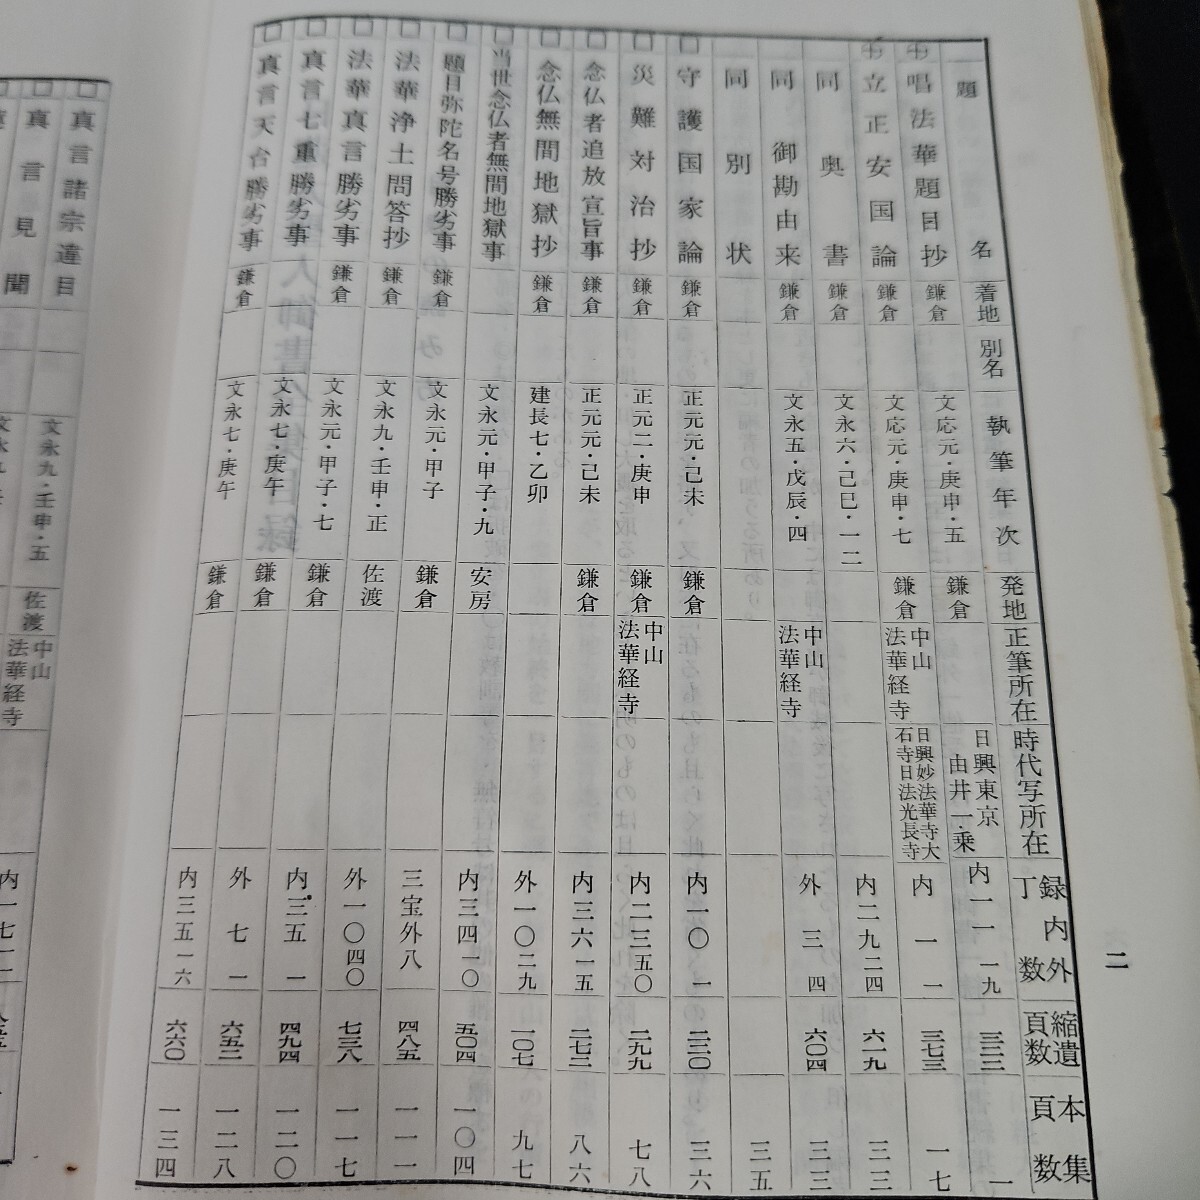 題名 着地 別名 執筆年次 発地 正筆所在 時代写所在 録内外丁数 縮遺頁数 本集頁数
唱法華題目抄 鎌倉 文応元・庚申・五 鎌倉 日興東京由井一乗 内一一 一九 三三三 一
立正安国論 鎌倉 文応元・庚申・七 鎌倉 中山法華経寺 日興妙法華寺大石寺日法光長寺 内一 一 三七三 一七
同奥書 鎌倉 文永六・己巳・一二 内二九 二四 六一九 三三
同御勘由来 鎌倉 文永五・戊辰・四 中山法華経寺 外三 四 六〇四 三三
同別状 三五
守護国家論 鎌倉 正元元・己未 鎌倉 内一〇 一 二三〇 三六
災難対治抄 鎌倉 正元二・庚申 鎌倉 中山法華経寺 内二三 五〇 二九九 七八
念仏者追放宣旨事 鎌倉 正元元・己未 鎌倉 内三六 一五 二七二 八六
念仏無間地獄抄 鎌倉 建長七・乙卯 外一〇 二九 一〇七 九七
当世念仏者無間地獄事 文永元・甲子・九 安房 内三四 一〇 五〇四 一〇四
題目弥陀名号勝劣事 鎌倉 文永元・甲子 鎌倉 三宝外八 四八五 一一一
法華浄土問答抄 鎌倉 文永九・壬申・正 佐渡 外一〇 四〇 七三八 一一七
法華真言勝劣事 鎌倉 文永元・甲子・七 鎌倉 内三五 一 四九四 一二〇
真言七重勝劣事 文永七・庚午 鎌倉 外七 一 六五二 一二八
真言天台勝劣事 鎌倉 文永七・庚午 鎌倉 内三五 一六 六六〇 一三四
二
真言諸宗違目 文永九・壬申・五 佐渡 中山法華経寺
真言見聞